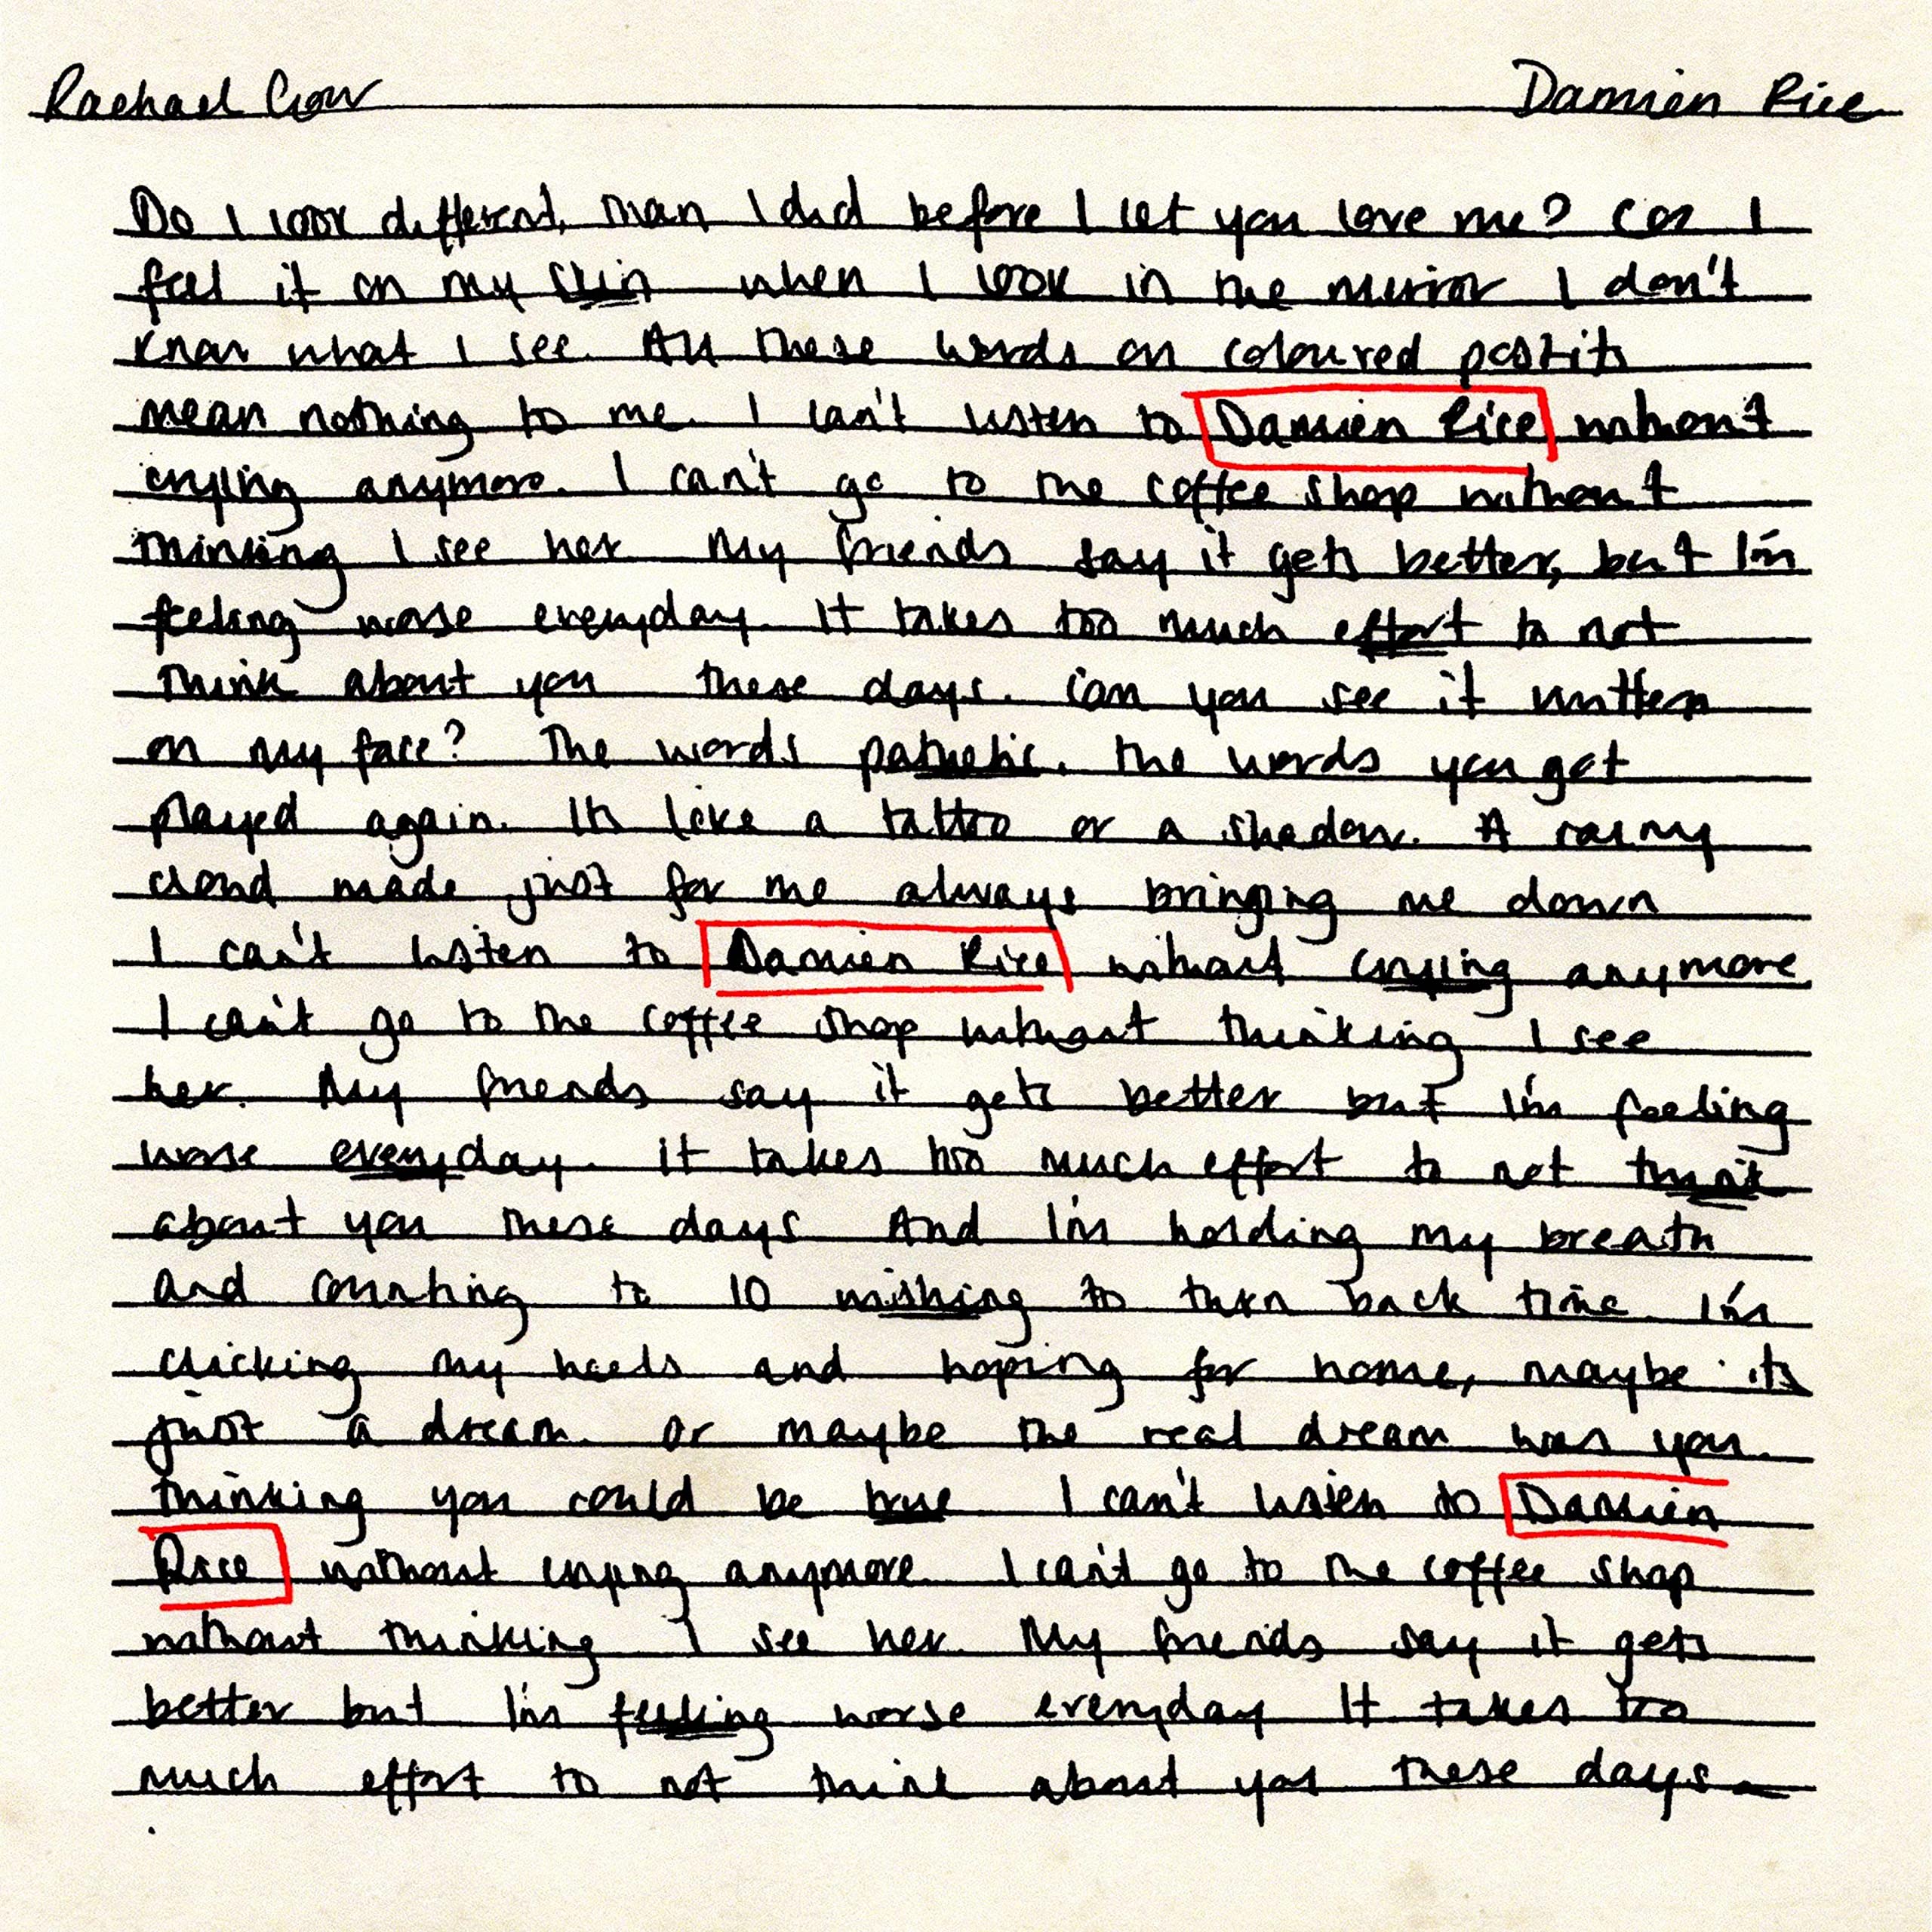 Rachael Crow Damien Rice
Do I look different, than I did before I let you love me? Cos I
feel it on my skin when I look in the mirror I don't
know what I see. All these words on coloured postits
mean nothing to me. I can't listen to Damien Rice without
crying anymore. I can't go to the coffee shop without
thinking I see her. My friends say it gets better, but I'm
feeling worse everyday. It takes too much effort to not
think about you these days. Can you see it written
on my face? The words pathetic. The words you got
played again. Its like a tattoo or a shadow. A rainy
cloud made just for me always bringing me down
I can't listen to Damien Rice without crying anymore
I can't go to the coffee shop without thinking I see
her. My friends say it gets better but I'm feeling
worse everyday. it takes too much effort to not think
about you these days And I'm holding my breath
and counting to 10 wishing to turn back time. I'm
clicking my heels and hoping for home, maybe its
just a dream. or maybe the real dream was you.
thinking you could be true I can't listen to Damien
Rice without crying anymore. I can't go to the coffee shop
without thinking I see her. My friends say it gets
better but I'm feeling worse everyday It takes too
much effort to not think about you these days